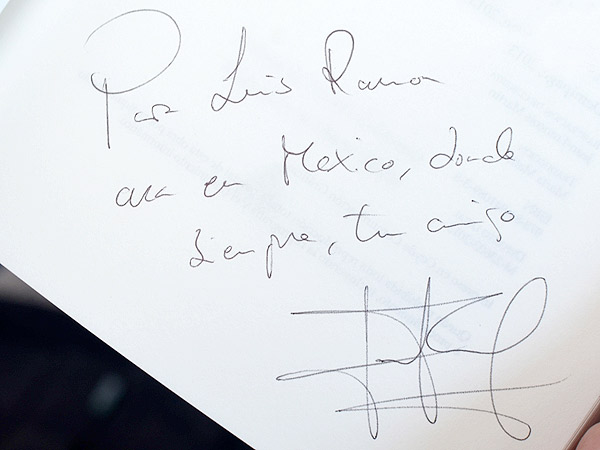 Para Luis Ramon
aca en Mexico, donde
siempre, tu amigo